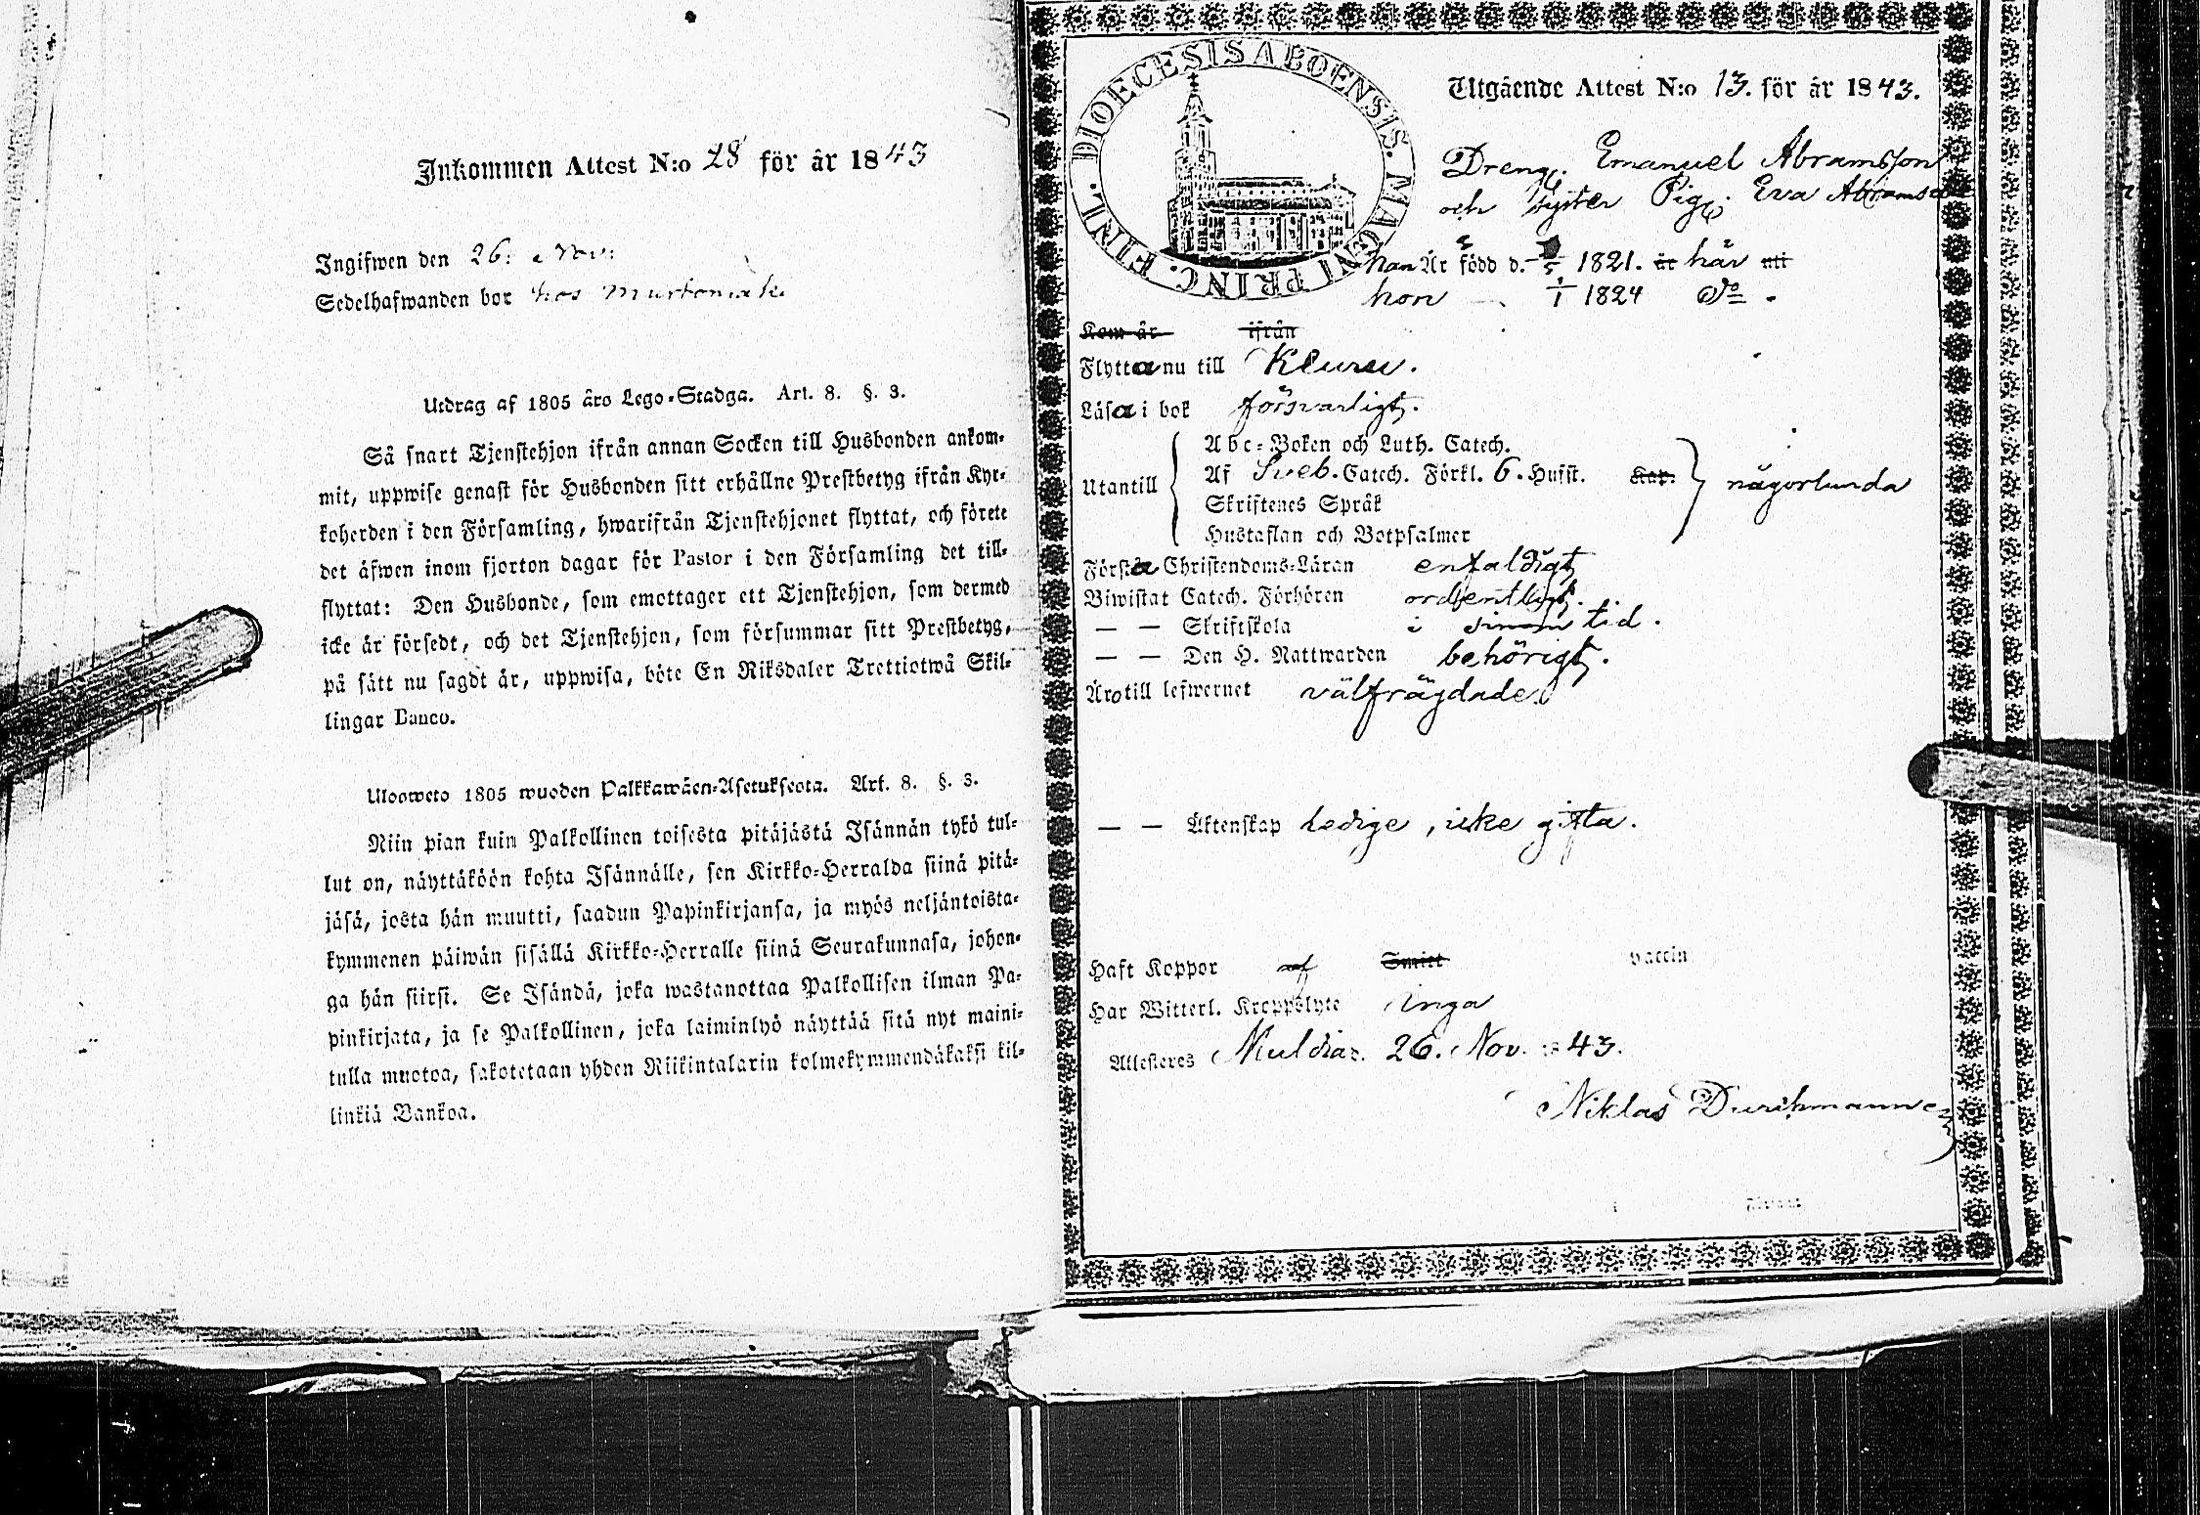 Inkommen Attest N:o 28 för år 1843
Ingifwen den 26. Nov:
Sedelhafwanden bor hos
Utdrag af 1805 åro Lego-Stadga. Art. 8. §. 3.
Så snart Tjenstehjon ifrån annan Socken till Husbonden ankom-
mit, uppwise genast för Husbonden sitt erhållne Prestbetyg ifrån Kyr-
koherden i den Församling, hwarifrån Tjenstehjonet flyttat, och förete
det äfwen inom fjorton dagar för Pastor i den Församling det till-
flyttat: Den Husbonde, som emottager ett Tjenstehjon, som dermed
icke är försedt, och det Tjenstehjon, som försummar sitt Prestbetyg,
på sätt nu sagdt är, uppwisa, böte En Riksdaler Trettiotwå Skil-
lingar Banco.
Ulosweto 1805 wuoden Palkkawäen-Asetuksesta. Art. 8. §. 3.
Niin pian kuin Palkollinen toisesta pitäjästä Isännän tykö tul-
lut on, näyttäköön kohta Isännälle, sen Kirkko-Herralda siinä pitä-
jäsä, josta hän muutti, saadun Papinkirjansa, ja myös neljäntoista-
kymmenen päiwän sisällä Kirkko-Herralle siinä Seurakunnasa, johon-
ga hän siirsi. Se Isändä, joka wastanottaa Palkollisen ilman Pa-
pinkirjata, ja se Palkollinen, joka laiminlyö näyttää sitä nyt maini-
tulla muotoa, sakotetaan yhden Riikintalarin kolmekymmendäkaksi kil-
linkiä Bankoa.
DIOECESIS ABOENSIS. MAGNI PRINC. FINL.
Utgående Attest N:o 13. för år 1843.
Dreng. Emanuel Abramsson
och syster Pig. Eva Abramsd
han Är född d. 5 1821. är här uti
hon 1/1 1824 do.
Kom år ifrån
Flytta nu till Keuru.
Läsa i bok försvarligt.
Utantill
Abc-Boken och Luth. Catech.
Af Sveb. Catech. Förkl. 6. Hufst. Kap.
Skriftenes Språk
Hustaflan och Botpsalmer
någorlunda
Förstå Christendoms-Läran enfaldigt
Biwistat Catech. Förhören ordentligt.
— — Skriftskola i sinom tid.
— — Den H. Nattwarden behörigt.
Äro till lefwernet välfrägdade.
— — Äktenskap Ledige, icke gifta.
Haft Koppor af Smitt vaccin
Har Witterl. Kroppslyte inga
Attesteres Muldia d. 26. Nov. 1843.
Niklas